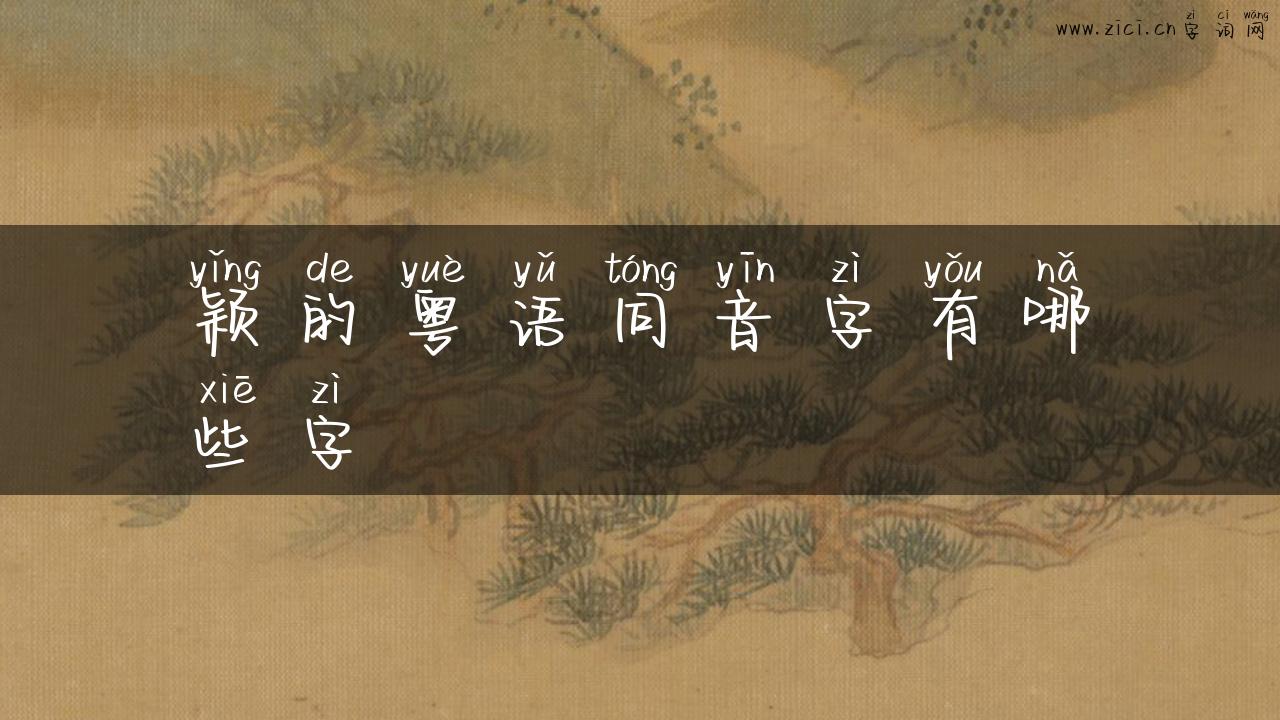 zì cí wǎng
www.zici.cn 字词网
yǐng de yuè yǔ tóng yīn zì yǒu nǎ
颖的粤语同音字有哪
xiē zì
些字